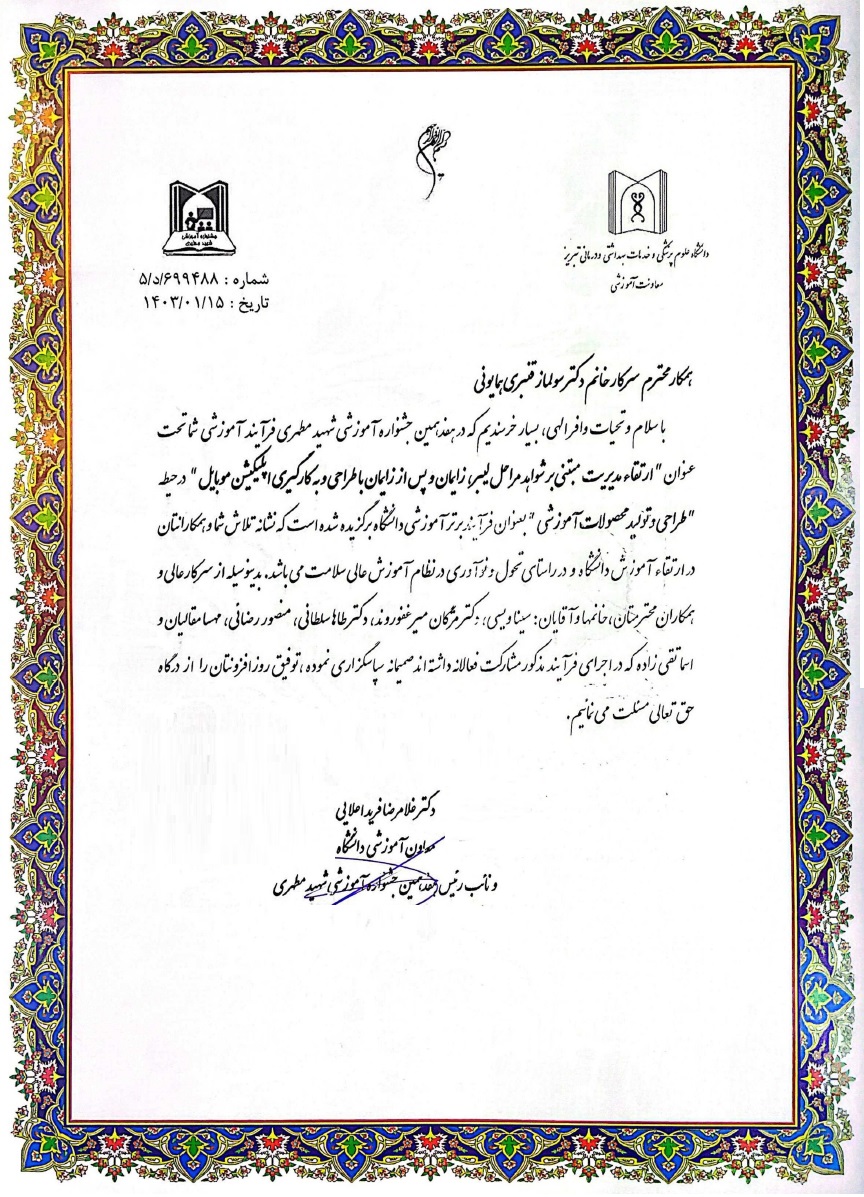 بسم الله الرحمن الرحیم
دانشگاه علوم پزشکی و خدمات بهداشتی و درمانی تبریز
معاونت آموزشی
جشنواره آموزشی
شهید مطهری
شماره : ۵/د/۶۹۹۴۸۸
تاریخ : ۱۴۰۳/۰۱/۱۵
همکار محترم سرکار خانم دکتر سولماز قنبری همایونی
با سلام و تحیات وافر الهی، بسیار خرسندیم که در هفدهمین جشنواره آموزشی شهید مطهری فرآیند آموزشی شما تحت
عنوان "ارتقاء مدیریت مبتنی بر شواهد مراحل لیبر، زایمان و پس از زایمان با طراحی و به کارگیری اپلیکیشن موبایل" در حیطه
"طراحی و تولید محصولات آموزشی" بعنوان فرآیند برتر آموزشی دانشگاه برگزیده شده است که نشانه تلاش شما و همکارانتان
در ارتقاء آموزش دانشگاه و در راستای تحول و نوآوری در نظام آموزش عالی سلامت می باشد. بدینوسیله از سرکار عالی و
همکاران محترمتان، خانمها و آقایان: سینا ویسی، دکتر مژگان میرغفوروند، دکتر طاها سلطانی، منصور رضائی، مهسا مقالیان و
اسما تقی زاده که در اجرای فرآیند مذکور مشارکت فعالانه داشته اند صمیمانه سپاسگزاری نموده، توفیق روز افزونتان را از درگاه
حق تعالی مسئلت می نمائیم.
دکتر غلامرضا فرید اعلایی
معاون آموزشی دانشگاه
و نائب رئیس هفدهمین جشنواره آموزشی شهید مطهری